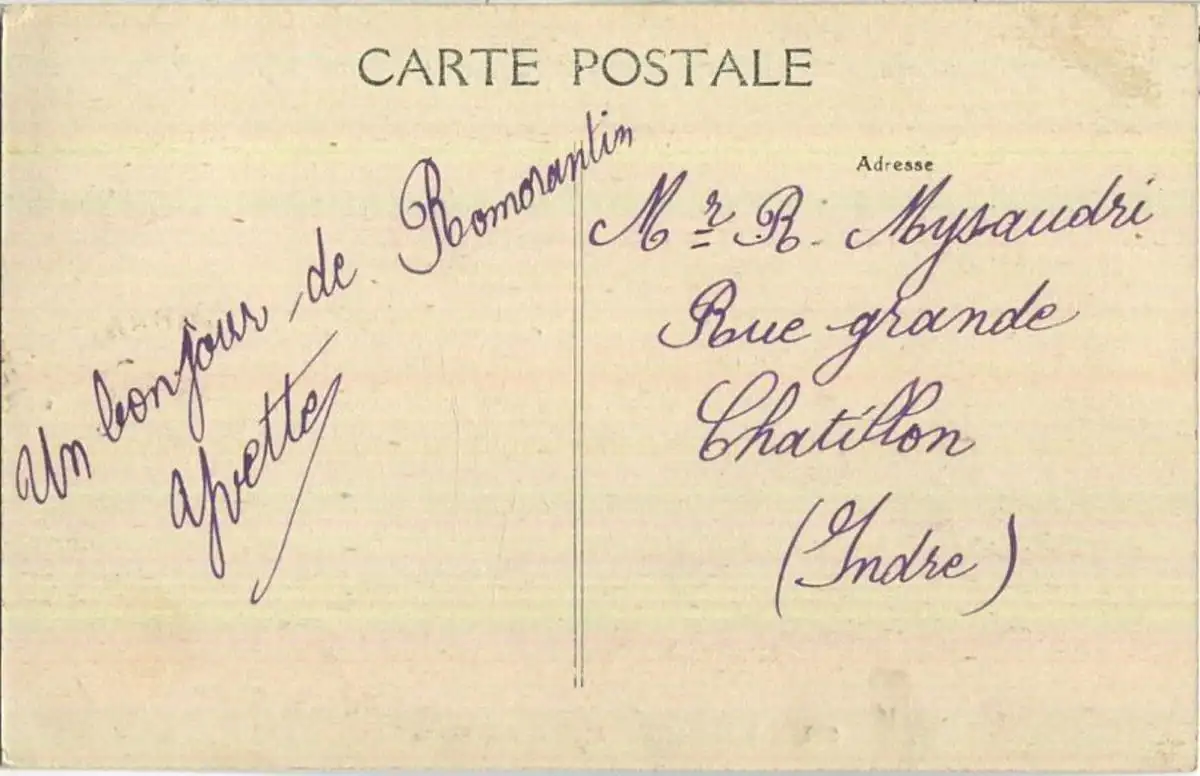 CARTE POSTALE
Un bonjour de Romorantin
Yvette
Adresse
Mr R. Mysaudri
Rue grande
Chatillon
(Indre)